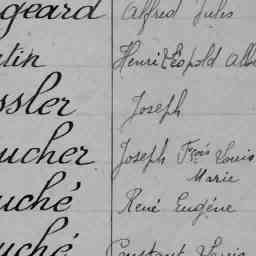 geard Alfred Jules
tin Henri Léopold Alb
ssler Joseph
ucher Joseph Frçois Louis
Marie
uché René Eugène
uché Constant Louis